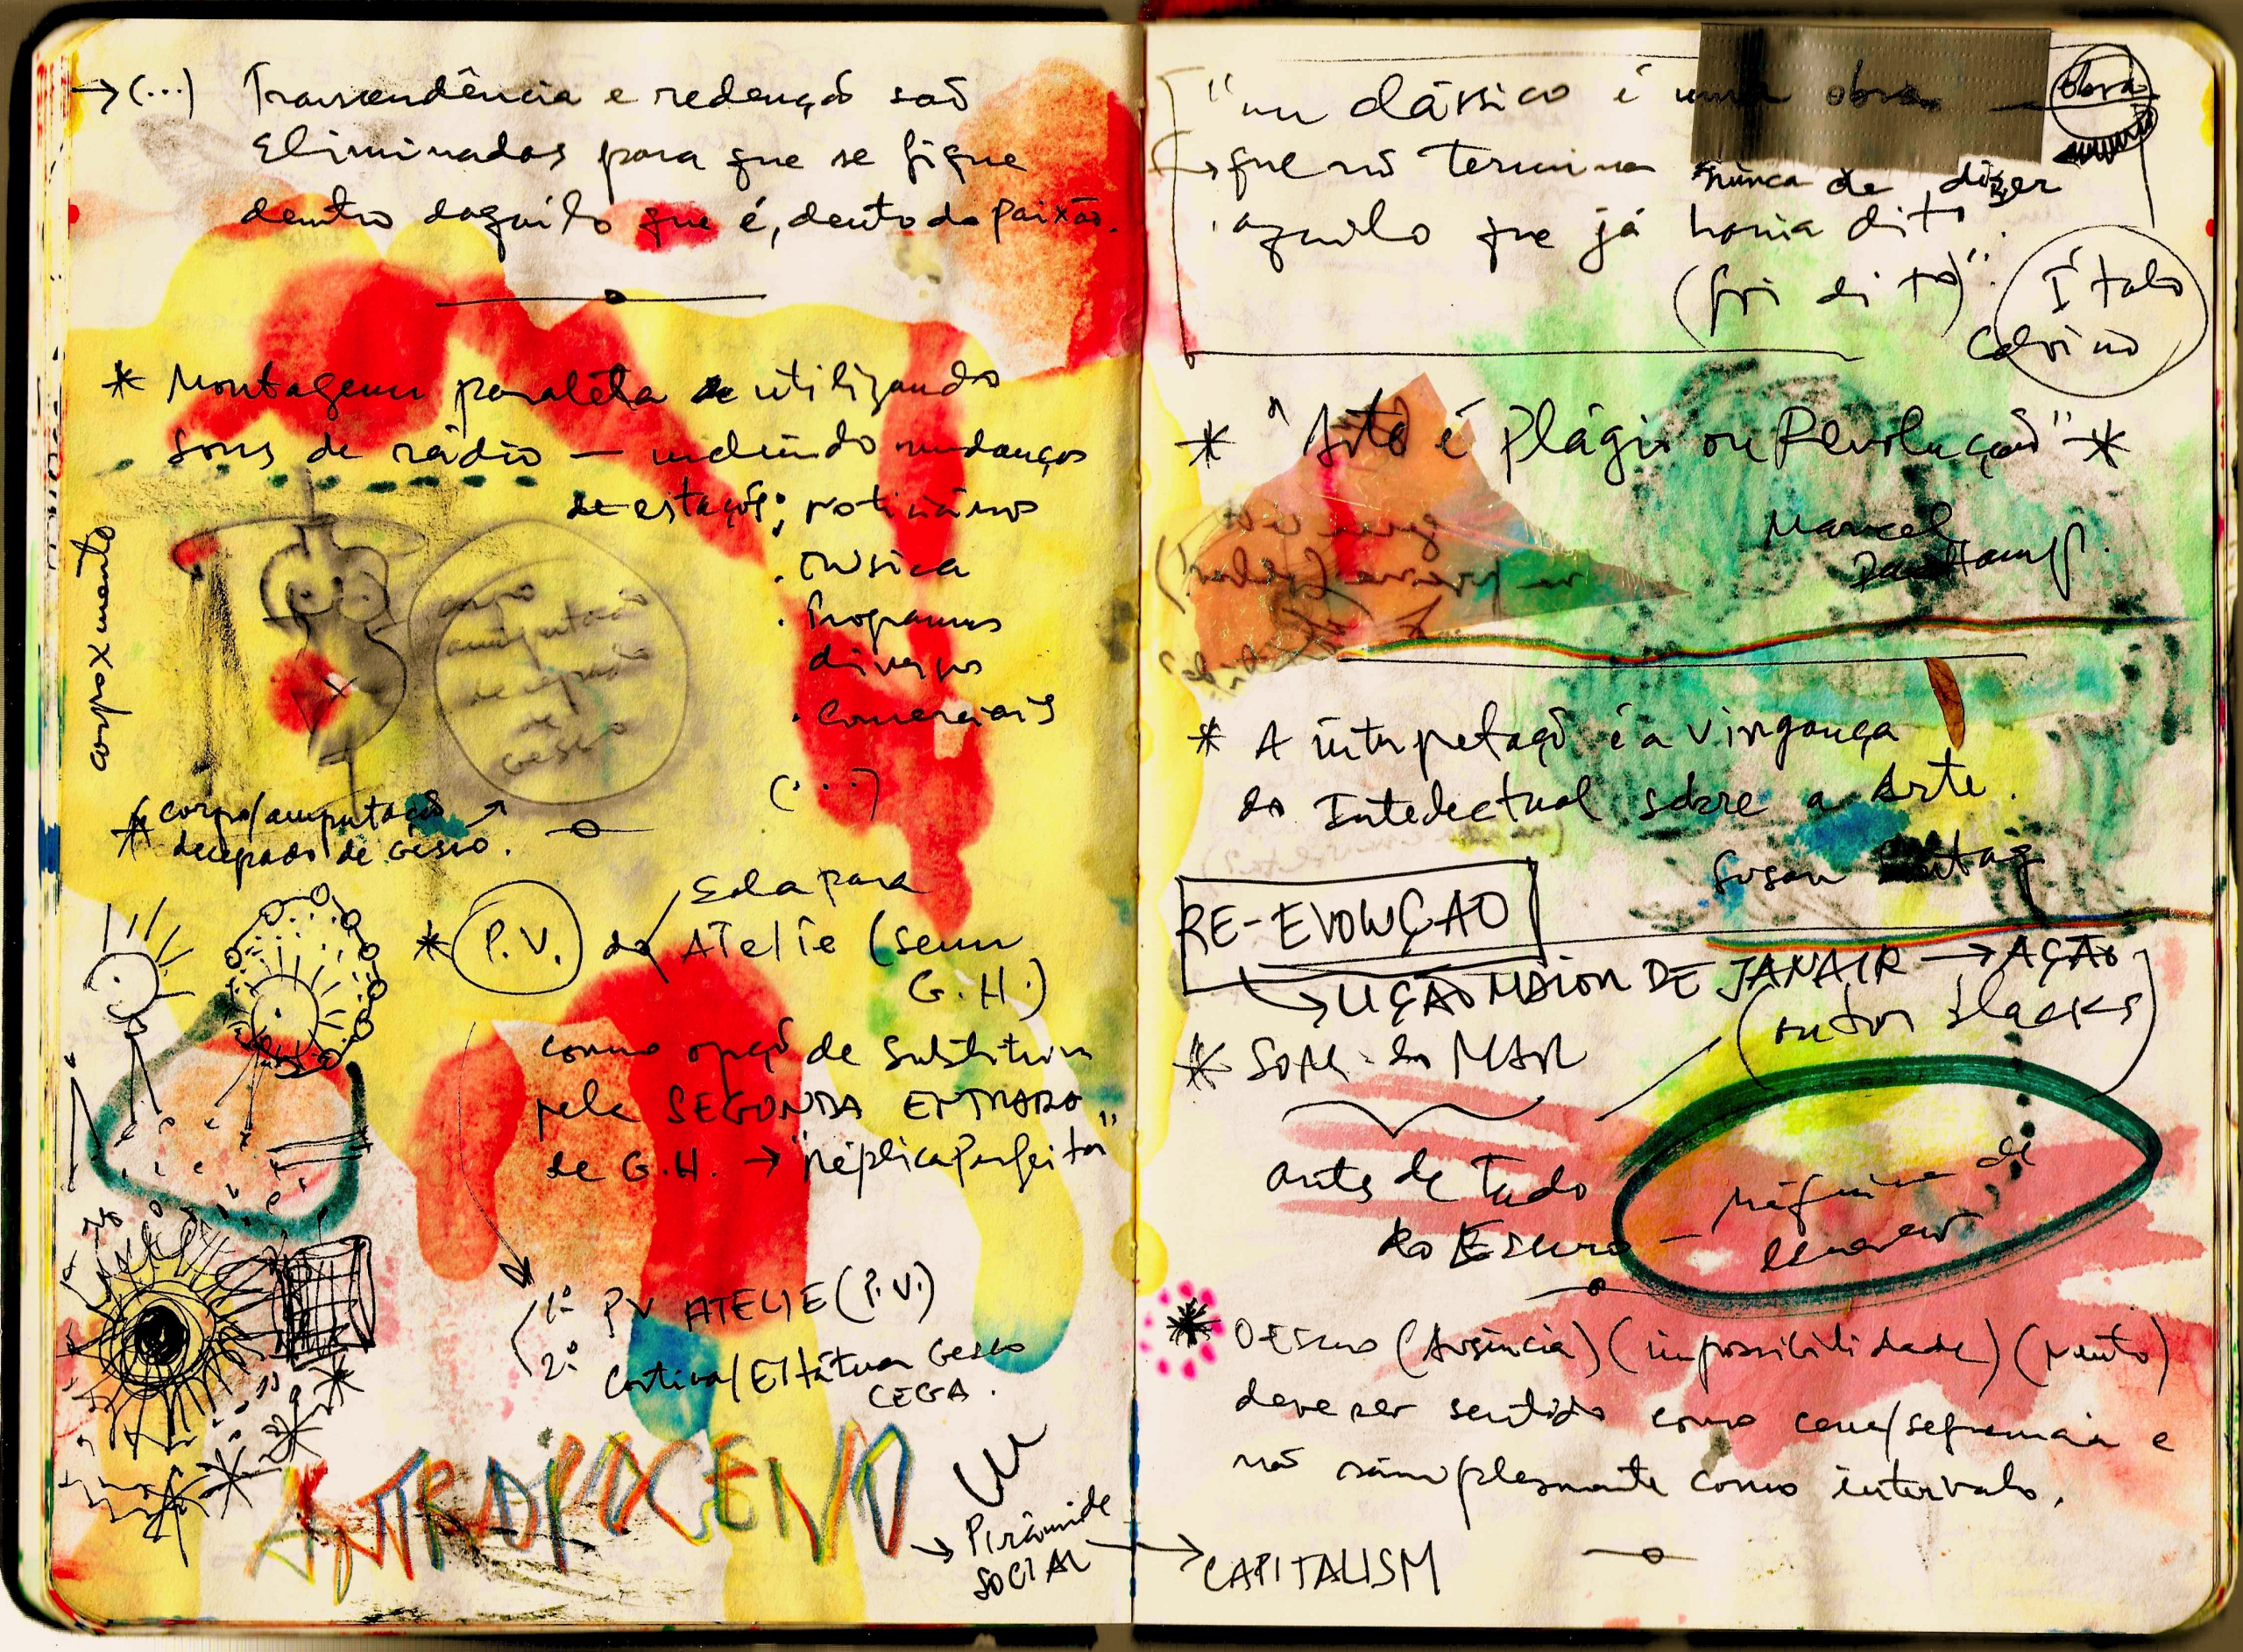 →(...) Transcendência e redenção são
Eliminadas para que se fique
dentro daquilo que é, dento da Paixão.
* Montagem paralela utilizando
sons de rádio — incluindo mudanças
de estação; noticiários
. Música
. Programas
diversos
. Comerciais
(...)
corpo x mento
corpo
amputação
decepado
de
Gesso
* corpo/amputação
decepado de Gesso.
* P.V. da Sala para
Ateliê (sem
G.H.)
como opção de Substituir
pela SEGUNDA ENTRADA
de G.H. → "réplica Perfeita"
1º PV ATELIE (P.V.)
2º Cortina/Estátua Gesso
CEGA.
ANTROPOCENO
→ Pirâmide
SOCIAL
"um clássico é uma obra — obra
→ que não termina nunca de dizer
aquilo que já havia dito
(foi dito)".
Ítalo
Calvino
* "Arte é Plágio ou Revolução" *
Marcel
* A interpretação é a vingança
do Intelectual sobre a Arte.
Susan
RE-EVOLUÇÃO
→ LIÇÃO MAIOR DE JANAIR → AÇÃO
(outros blacks)
* SOM do MAR
antes de Tudo
do Escuro — máquina de
escrever
* O Escuro (Ausência) (impossibilidade) (Neutro)
deve ser sentido como cena/sequencia e
não simplesmente como intervalo.
→ CAPITALISM